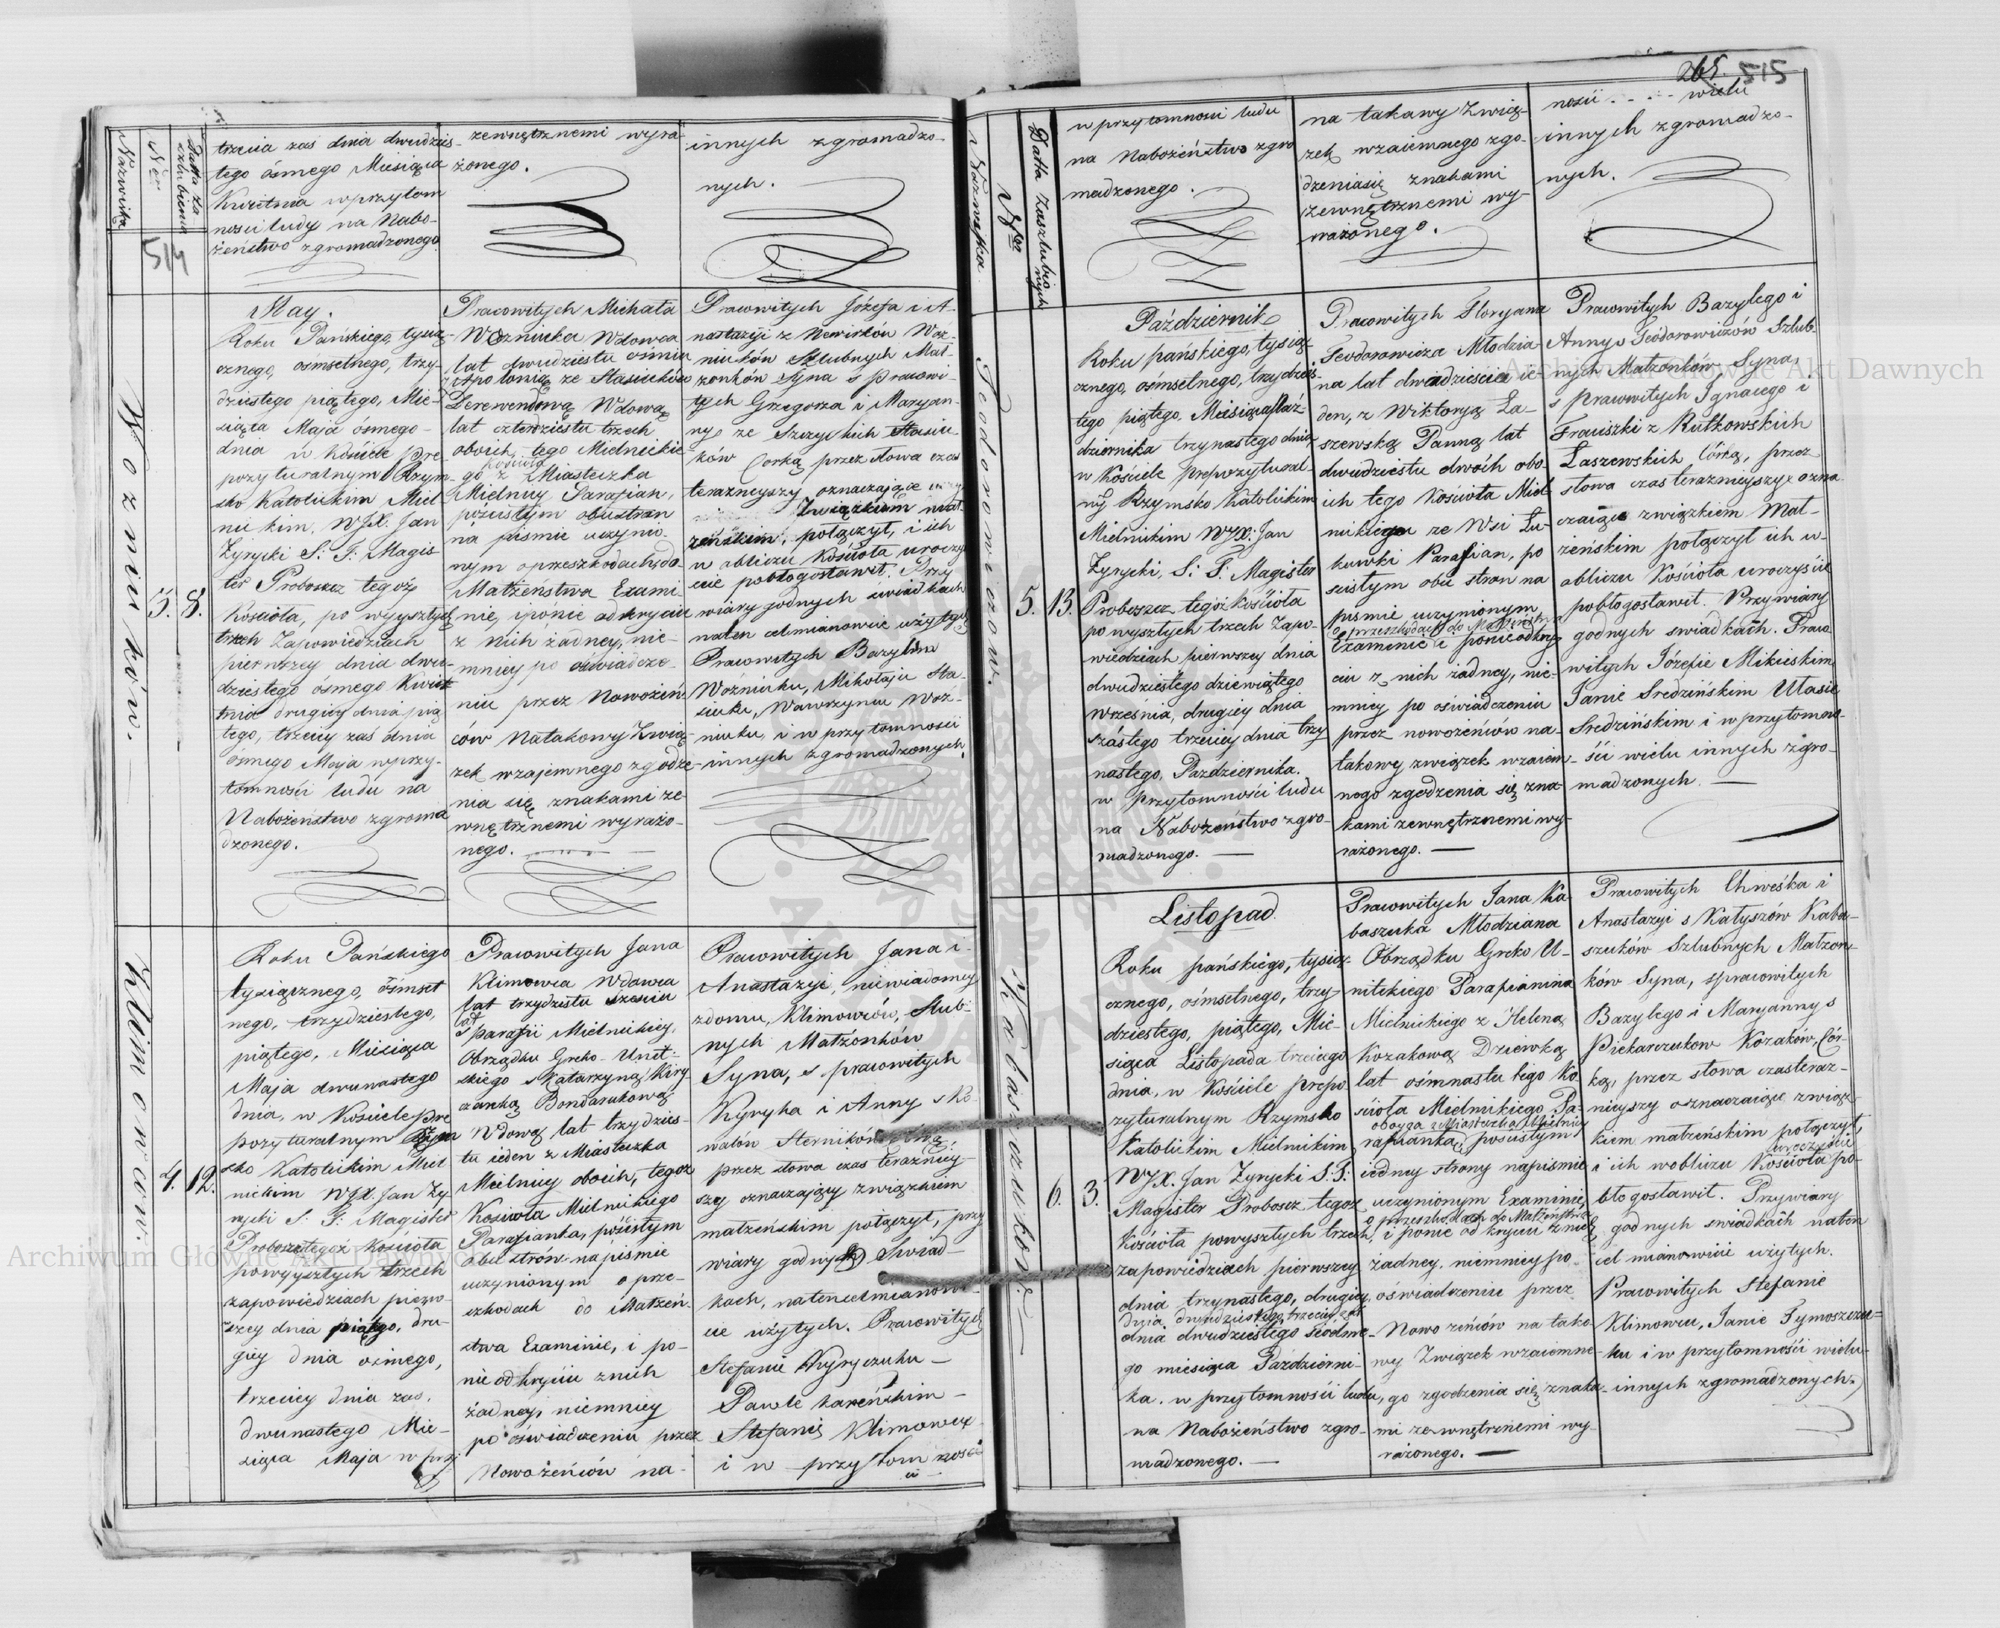 Nazwiska
Ner
Datta za
szlubienia
514
trzecia zas dnia dwudzies-
tego ósmego Miesiąca
Kwietnia w przytom
nosci ludu na Nabo-
żeństwo zgromadzonego.
zewnętrznemi wyra-
żonego.
innych zgromadzo-
nych.
Wozniuków.
3.
8.
May.
Roku Pańskiego, tysią-
cznego, ośmsetnego, trzy-
dziestego piątego, Mie-
siąca Maja ósmego
dnia w Kościele Pre
pozyturalnym Rzym-
sko Katolickim Miel
nickim, WJX. Jan
Zyrycki S: T: Magis
ter Proboszcz tegoż
Kościoła, po wyysztych
trzech Zapowiedziach
pierwszey dnia dwu-
dziestego ósmego Kwiet
tnia drugiey dnia pią
tego, trzeciey zaś dnia
ósmego Maja w przy-
tomności ludu na
Nabożeństwo zgroma
dzonego.
Pracowitych Michała
Wozniuka Wdowca
lat dwudziestu ośmiu
z Apolonią ze Stasiuków
Derewendową Wdową
lat czterdziestu trzech
oboich, tego Mielnickie
go Kościoła z Miasteczka
Mielnicy Parafian,
poźcistym obustron
na piśmie uczynio
nym o przeszkodach do
Małżeństwa Exami
nie, iponie odkryciu
z nich żadney, nie-
mniey po oświadcze-
niu przez Nowożeń
ców Natakowy Zwią-
zek wzajemnego zgodze
nia się znakami ze
wnętrznemi wyrażo-
nego.
Pracowitych Józefa i A-
nastazyi z Newirków Woź-
niuków Szlubnych Mał-
żonków Syna s pracowi-
tych Grzegorza i Maryan-
ny ze Szczyckich Stasiu-
ków Corką przez słowa czas
teraznieyszy oznaczające
Związkiem mał-
żeńskim, połączył, i ich
w obliczu Kościoła uroczy
ście pobłogosławił. Przy
wiary godnych swiadkach
naten cel mianowicie użytych
Pracowitych Bazylim
Woźniuku, Mikołaju Sta-
siuku, Wawrzyncu Woź-
niuku, i w przytomności
innych zgromadzonych.
Klimowców.
4.
12.
Roku Pańskiego
tysiącznego, óśmset
nego, trzydziestego,
piątego, Miesiąca
Maja dwunastego
dnia, w Kościele Pre
pozyturalnym Rzym
sko Katolickim Miel
nickim WJX. Jan Zy
rycki S: T: Magister
Proboszcz tegoż Kościoła
powyysztych trzech
zapowiedziach pierw-
szey dnia piątego, dru-
giey dnia osmego,
trzeciey dnia zas,
dwunastego Mie-
siąca Maja w przy
Pracowitych Jana
Klimowca Wdowca
lat trzydziestu szesciu
z Parafii Mielnickiey,
Obrządku Greko-Unit-
skiego s Katarzyną Kiry-
czanką Bondarukową
Wdową lat trzydzies-
tu ieden z Miasteczka
Mielnicy oboich, tegoż
Kościoła Mielnickiego
Parafianka, pościstym
obu strón na piśmie
uczynionym o prze-
szkodach do Małżeń-
stwa Examinie, i po-
nie odkryciu znich
żadney, niemniey
po oświadczeniu przez
Nowożeńców na-
Pracowitych Jana i
Anastazyi, niewiadomey
zdomu, Klimowców, Slub-
nych Małżonków
Syna, s pracowitych
Kyryka i Anny s Ko-
walów Sterników Córką,
przez słowa czas teraźniey-
szy oznaczający związkiem
małżeńskim połączył, przy
wiary godnych Świad-
kach, natencelmianowi-
cie użytych. Pracowitych
Stefanie Kyryczuku —
Pawle Kareńskim —
Stefanie Klimowcu
i w przytomnosci
265. 515
Nazwiska
Datta Zaszlubio
nych
w przytomnosci ludu
na Nabożeństwo zgro
madzonego.
na takowy Zwią-
zek wzaiemnego zgo-
dzeniasię znakami
zewnętrznemi wy-
rażonego.
nosci wielu
innych zgromadzo-
nych.
Teodorowiczow.
5.
13.
Październik
Roku pańskiego, tysiąc-
cznego, ośmsetnego, trzydzies-
tego piątego, Miesiąca Paź-
dziernika trzynastego dnia
w Kościele prepozytural-
nÿ Rzymsko Katolickim
Mielnickim WJX: Jan
Zyrycki, S: T: Magister
Proboszcz tegóż kościoła
po wysztych trzech Zapo-
wiedziach pierwszey dnia
dwudziestego dziewiątego
Września, drugiey dnia
szóstego trzeciey dnia trzy
nastego, Pazdziernika.
w przytomności ludu
na Nabożeństwo zgro-
madzonego. —
Pracowitych Floryana
Teodorowicza Młodzia-
na lat dwadzieścia ie-
den, z Wiktoryą Ła-
szewską Panną lat
dwudziestu dwóch obo-
ich tego Kościoła Miel
nickiego ze Wsi Łu-
kawki Parafian, po
ścistym obu stron na
piśmie uczynionym
o przeszkodach do Małżeństwa
Examinie i ponie odkry
ciu z nich żadney, nie-
mniey po oświadczeniu
przez nowożeńców na-
takowy związek wzaiem-
nego zgodzenia się zna-
kami zewnętrznemi wy-
rażonego. —
Pracowitych Bazylego i
Anny Teodorowiczów Szlub
nych Małżonków Syna,
s pracowitych Ignacego i
Frąciszki z Rutkowskich
Łaszewskich Córką, przez
słowa czas teraźnieyszy ozna
czaiące związkiem Mał-
żeńskim połączył ich w-
obliczu Kościoła uroczyście
pobłogosławił. Przy wiary
godnych swiadkach. Praco
witych Józefie Mikieskim
Janie Sredzińskim
Sredzińskim i w przytomno-
ści wielu innych zgro-
madzonych. —
Kabaszuków.
6.
3.
Listopad.
Roku pańskiego, tysią-
cznego, ośmsetnego, trzy-
dziestego, piątego, Mie-
siąca Listopada trzeciego
dnia, w Kościele prepo
zyturalnym Rzymsko
Katolickim Mielnickim
WJX. Jan Zyrycki S: T:
Magister Proboszcz tegoż
Kościoła powysztych trzech
zapowiedziach pierwszey
dnia trzynastego, drugiey
dnia dwudziestego, trzeciey zaś
dnia dwudziestego siódme-
go miesiąca Październi-
ka. w przytomności ludu,
na Nabożeństwo zgro-
madzonego. —
Pracowitych Jana Ka
baszuka Młodziana
Obrządku Greko U-
nitskiego Parafianina
Mielnickiego z Heleną
Kozakową Dziewką
lat ośmnastu tego Ko
ścioła Mielnickiego Pa-
oboyga z Miasteczka Mielnicy
rafianką, pościstym
iedney strony napismie
uczynionym Examinie
o przeszkodach do Małżeństwa
i ponie odkryciu znich
żadney, niemniey po-
oświadczeniu przez
Nowożeńców na tako
wy Związek wzaiemne-
go zgodzenia się znaka-
mi zewnętrznemi wy-
rażonego. —
Pracowitych Chweśka i
Anastazyi s Kałyszów Kaba-
szuków Szlubnych Małżon-
ków Syna, spracowitych
Bazylego i Maryanny s
Piekarczuków Kozaków, Cór-
ką, przez słowa czasteraz-
nieyszy oznaczaiące związ-
kiem małżeńskim połączył,
i ich wobliczu Kościoła uroczyście po-
błogosławił. Przywiary
godnych swiadkach naten
cel mianowicie użytych.
Pracowitych Stefanie
Klimowcu, Janie Tymoszczu-
ku i w przytomności wielu
innych zgromadzonych.
Archiwum Główne Akt Dawnych
Archiwum Główne Akt Dawnych